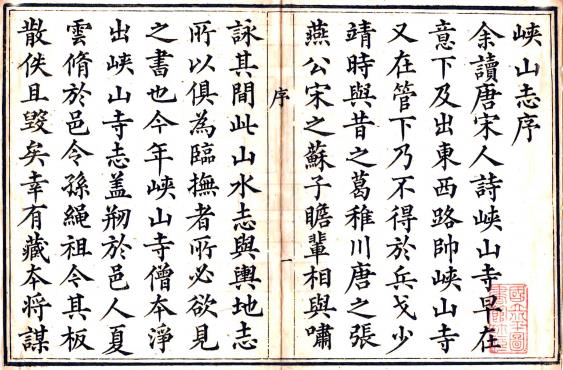 峽山志序
余讀唐宋人詩峽山寺早在
意下及出東西路帥峽山寺
又在管下乃不得於兵戈少
靖時與昔之葛稚川唐之張
燕公宋之蘇子瞻輩相與嘯
序
一
詠其間此山水志與輿地志
所以俱為臨撫者所必欲見
之書也今年峽山寺僧本淨
出峽山寺志盖刱於邑人夏
雲脩於邑令孫繩祖令其板
散佚且毀矣幸有藏本将謀